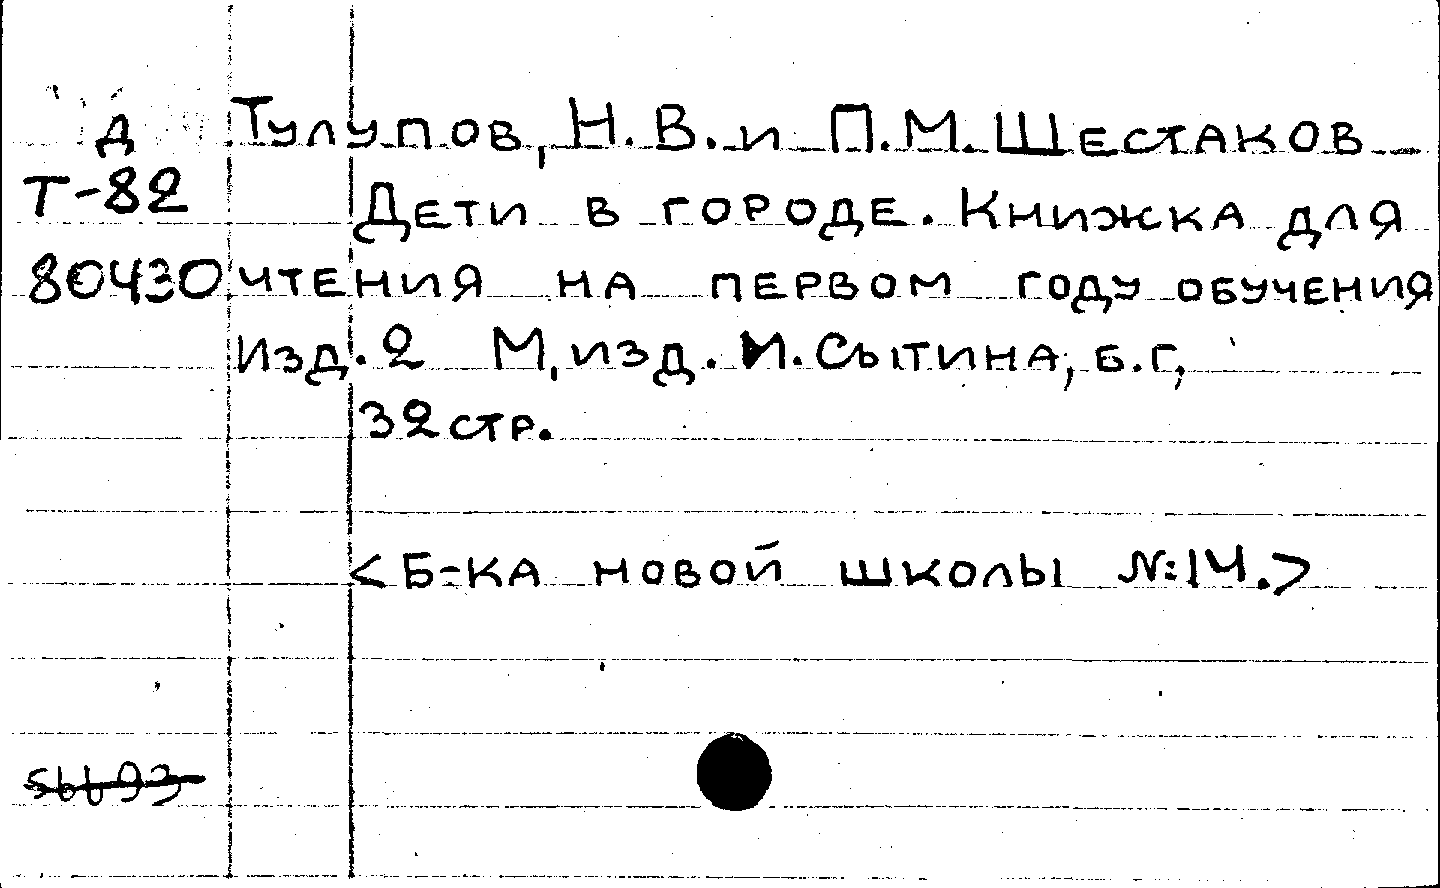 Д Тулупов, Н.В. и П.М. Шестаков
Т-82 Дети в городе. Книжка для
80430 чтения на первом году обучения
Изд. 2 М, изд. И. Сытина, б.г,
32 стр.
<Б-ка новой школы №14.>